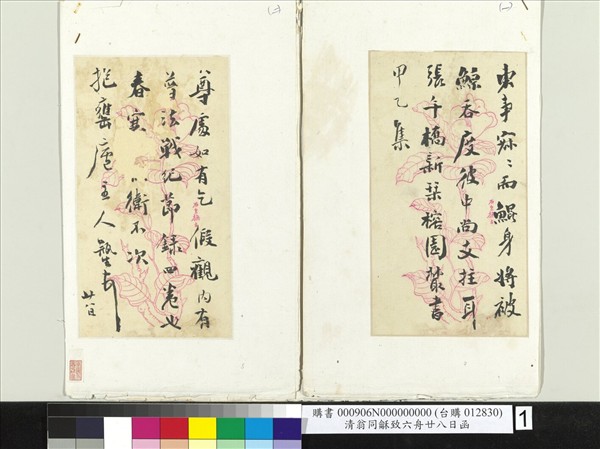 (二)
(一)
東事寂〻而鯤身將被
鯨吞度彼中尚支拄耳
張午橋新栞榕園叢書
甲乙集
尊處如有乞假觀內有
普法戰紀節錄四卷也
春寒 衛不次
抱甕廬主人
廿八日
購書 000906N000000000 (台購 012830)
清翁同龢致六舟廿八日函
1